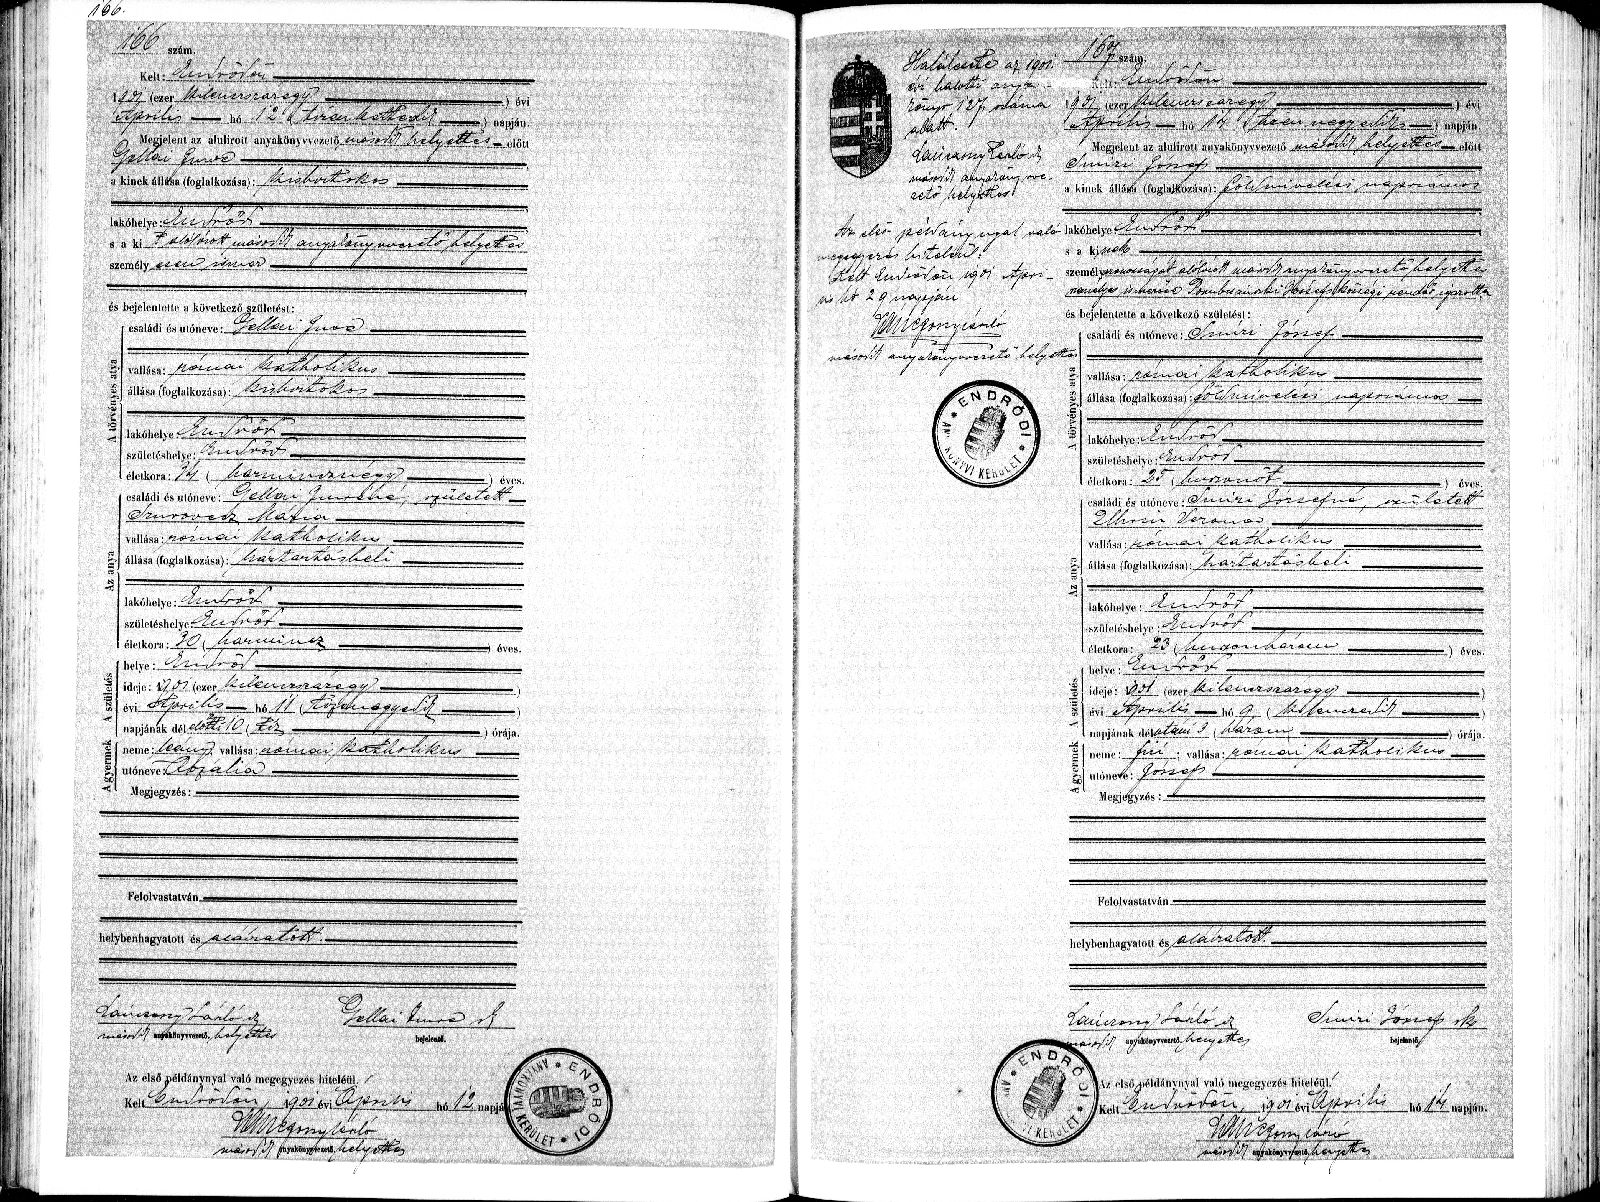 166.
166 szám.
Kelt: Endrődön
1901 (ezer kilenczszázegy) évi
Április hó 12 (tizenkettedik) napján.
Megjelent az alulirott anyakönyvvezető második helyettes előtt
Gellai Imre
a kinek állása (foglalkozása): kisbirtokos
lakóhelye: Endrőd
s a ki t alólirott második anyakönyvvezető helyettes
személyesen ismer
és bejelentette a következő születést:
A törvényes atya
családi és utóneve: Gellai Imre
vallása: római katholikus
állása (foglalkozása): kisbirtokos
lakóhelye: Endrőd
születéshelye: Endrőd
életkora: 34 (harmincznégy) éves.
Az anya
családi és utóneve: Gellai Imréné, született
Szurovecz Mária
vallása: római katholikus
állása (foglalkozása): háztartásbeli
lakóhelye: Endrőd
születéshelye: Endrőd
életkora: 30 (harmincz) éves.
A születés
helye: Endrőd
ideje: 1901 (ezer kilenczszázegy)
évi Április hó 11 (tizenegyedik)
napjának dél előtti 10 (tíz) órája.
A gyermek
neme: leány; vallása: római katholikus
utóneve: Rozália
Megjegyzés:
Felolvastatván
helybenhagyatott és aláiratott.
második anyakönyvvezető, helyettes
Gellai Imre sk
bejelentő.
Az első példánynyal való megegyezés hiteléül.
Kelt Endrődön, 1901 évi Április hó 12 napján
második anyakönyvvezető, helyettes
ENDRŐDI ANYAKÖNYVI KERÜLET
Halálesete az 1901
évi halotti anya-
könyv 127. száma
alatt.
második anyakönyvve-
zető helyettes.
Az első példánynyal való
megegyezés hiteléül.
Kelt Endrődön 1901 Ápri-
lis hó 29 napján
második anyakönyvvezető helyettes
ENDRŐDI ANYAKÖNYVI KERÜLET
167 szám.
Kelt: Endrődön
1901 (ezer kilenczszázegy) évi
Április hó 14 (tizennegyedik) napján
Megjelent az alulirott anyakönyvvezető második helyettes előtt
Imri József
a kinek állása (foglalkozása): földmivelési napszámos
lakóhelye: Endrőd
s a kinek
személyazonosságát alólirott második anyakönyvvezető helyettes
személyes ismerőse József községi rendőr igazolta
és bejelentette a következő születést:
A törvényes atya
családi és utóneve: Imri József
vallása: római katholikus
állása (foglalkozása): földmivelési napszámos
lakóhelye: Endrőd
születéshelye: Endrőd
életkora: 25 (huszonöt) éves.
Az anya
családi és utóneve: Imri Józsefné, született
vallása: római katholikus
állása (foglalkozása): háztartásbeli
lakóhelye: Endrőd
születéshelye: Endrőd
életkora: 23 (huszonhárom) éves.
A születés
helye: Endrőd
ideje: 1901 (ezer kilenczszázegy)
évi Április hó 9 (kilenczedik)
napjának dél utáni 3 (három) órája.
A gyermek
neme: fiú; vallása: római katholikus
utóneve: József
Megjegyzés:
Felolvastatván
helybenhagyatott és aláiratott.
második anyakönyvvezető, helyettes
Imri József sk
bejelentő.
Az első példánynyal való megegyezés hiteléül.
Kelt Endrődön, 1901 évi Április hó 14 napján.
második anyakönyvvezető, helyettes
ENDRŐDI ANYAKÖNYVI KERÜLET